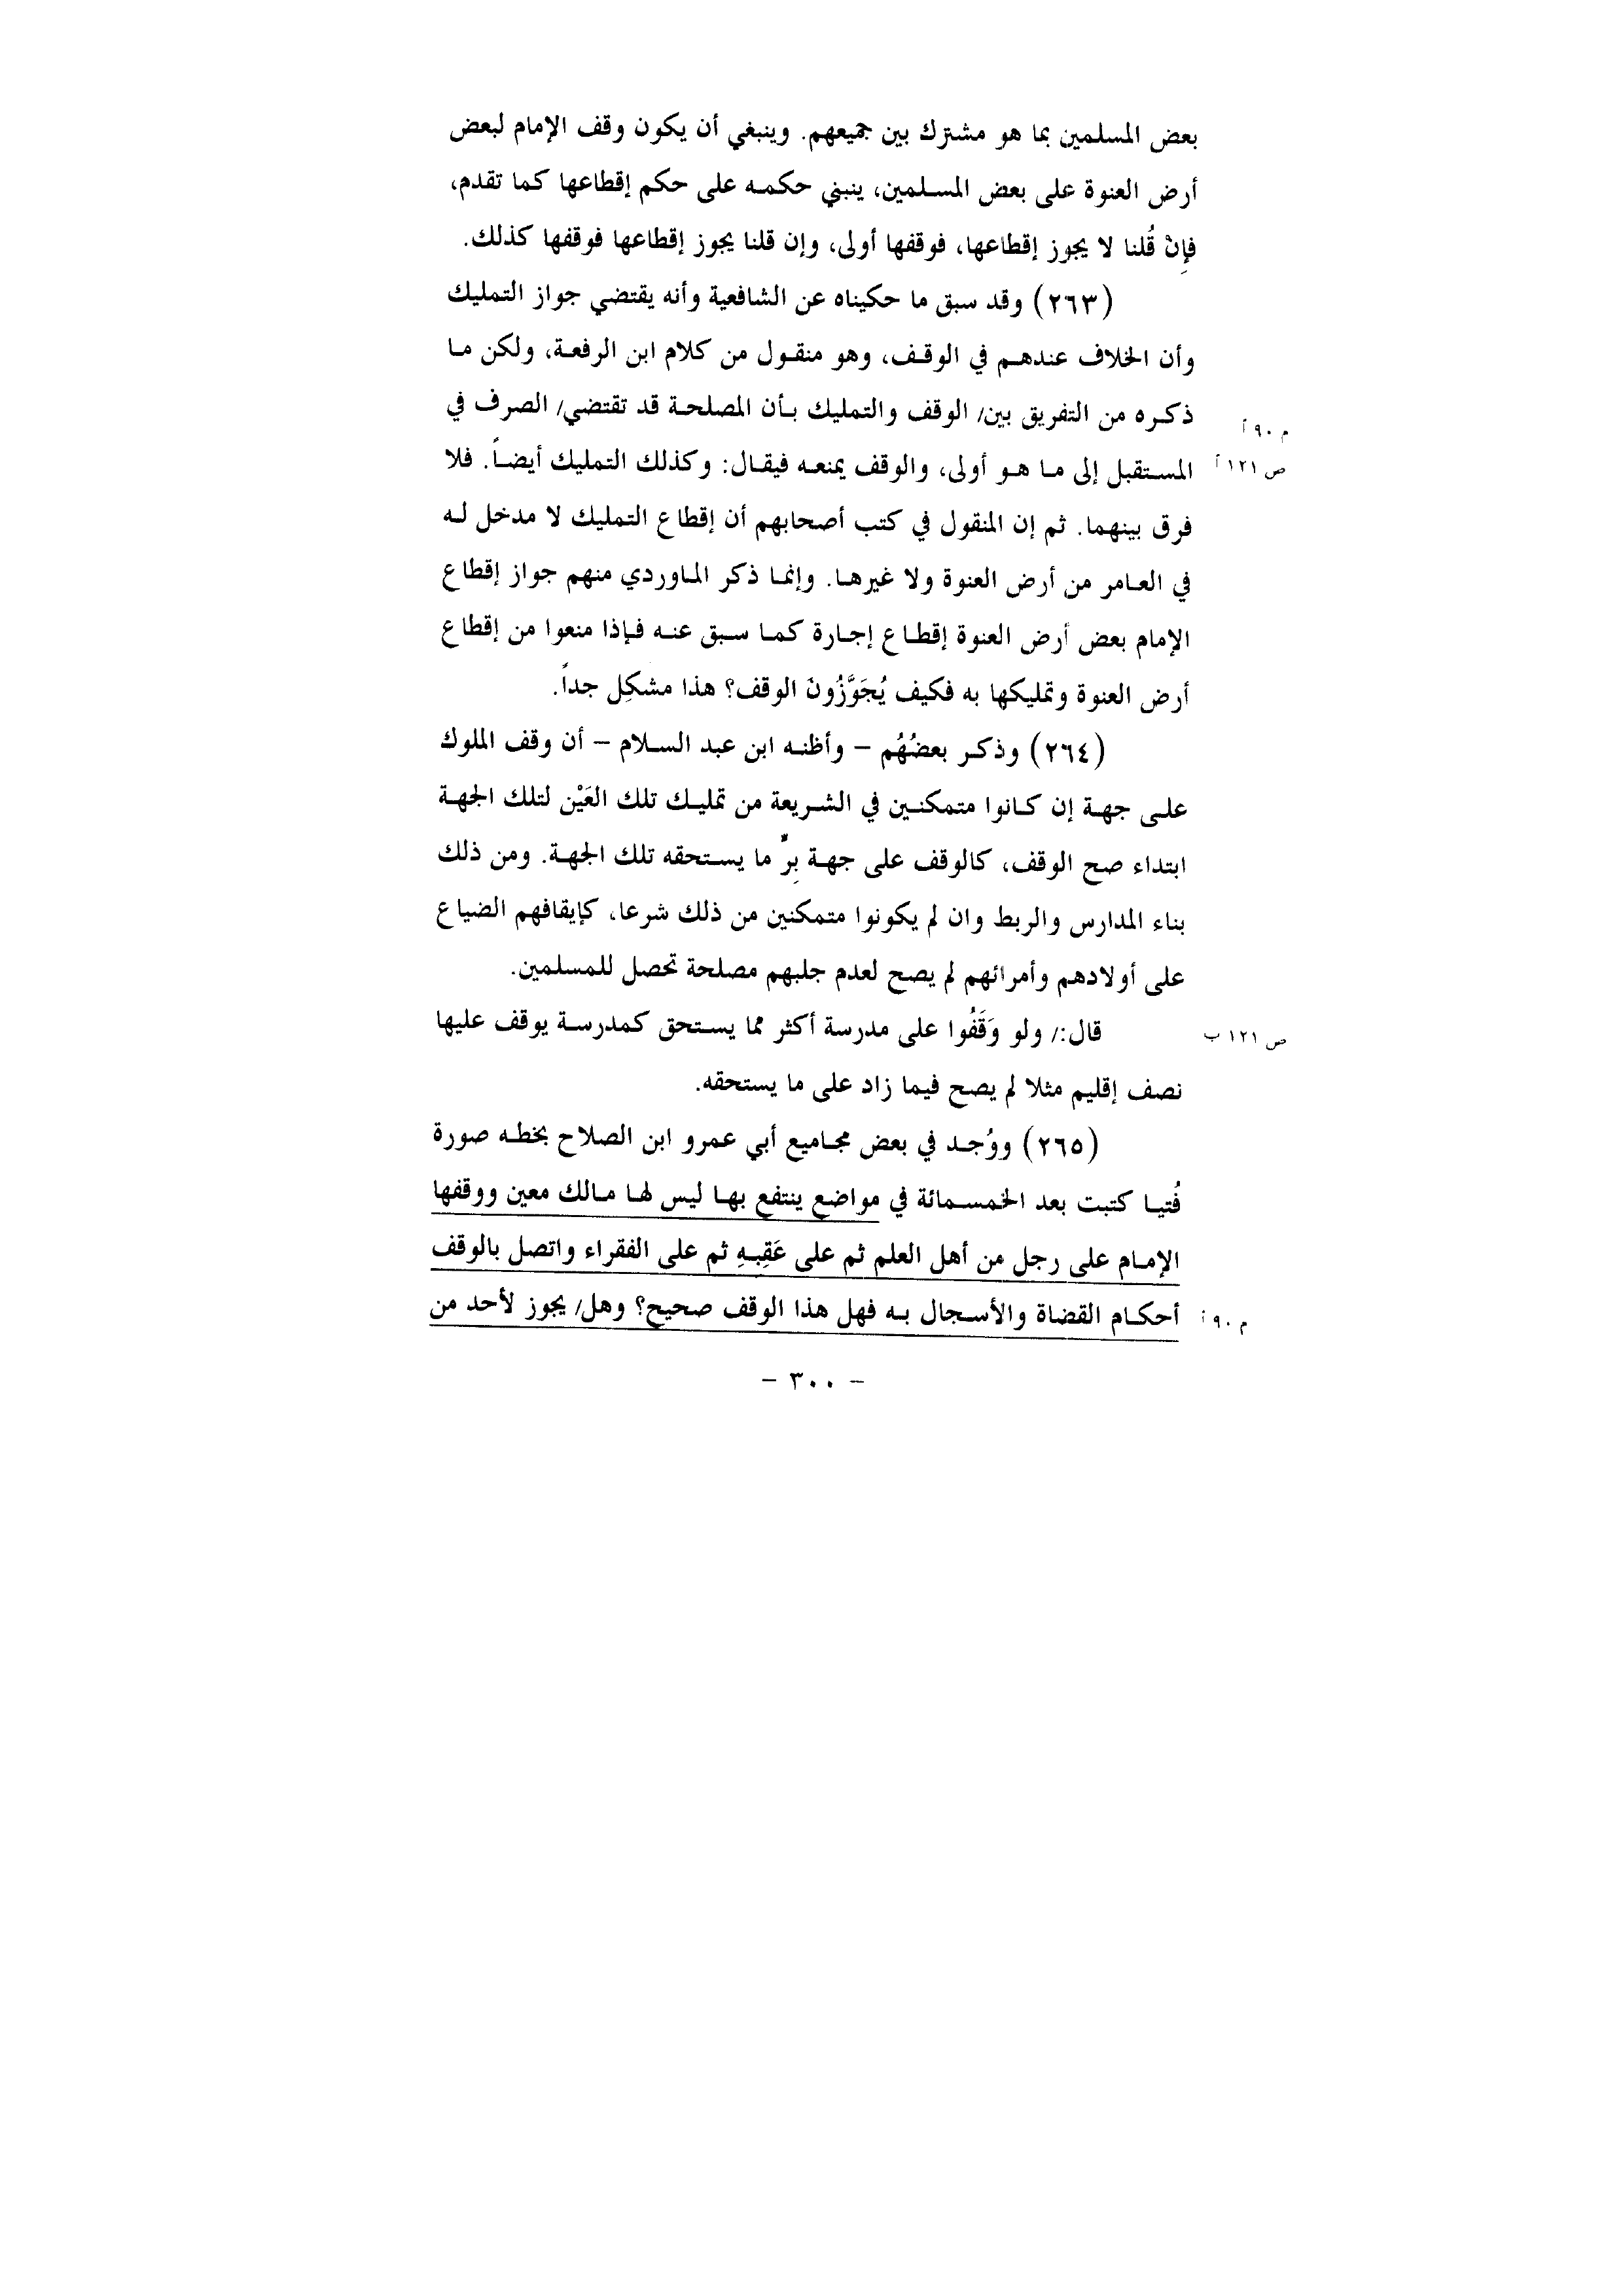 بعض المسلمين بما هو مشترك بين جميعهم. وينبغي أن يكون وقف الإمام لبعض
أرض العنوة على بعض المسلمين، ينبني حكمه على حكم إقطاعها كما تقدم،
فإِنْ قُلنا لا يجوز إقطاعها، فوقفها أولى، وإن قلنا يجوز إقطاعها فوقفها كذلك.
(٢٦٣) وقد سبق ما حكيناه عن الشافعية وأنه يقتضي جواز التمليك
وأن الخلاف عندهم في الوقف، وهو منقول من كلام ابن الرفعة، ولكن ما
ذكره من التفريق بين/ الوقف والتمليك بأن المصلحة قد تقتضي/ الصرف في
م ٩٠ أ
المستقبل إلى ما هو أولى، والوقف يمنعه فيقال: وكذلك التمليك أيضاً. فلا
ص ١٢١ أ
فرق بينهما. ثم إن المنقول في كتب أصحابهم أن إقطاع التمليك لا مدخل له
في العامر من أرض العنوة ولا غيرها. وإنما ذكر الماوردي منهم جواز إقطاع
الإمام بعض أرض العنوة إقطاع إجارة كما سبق عنه فإذا منعوا من إقطاع
أرض العنوة وتمليكها به فكيف يُجَوَّزُونَ الوقف؟ هذا مشكِل جداً.
(٢٦٤) وذكر بعضُهُم – وأظنه ابن عبد السلام – أن وقف الملوك
على جهة إن كانوا متمكنين في الشريعة من تمليك تلك العَيْن لتلك الجهة
ابتداء صح الوقف، كالوقف على جهة بِرٍّ ما يستحقه تلك الجهة. ومن ذلك
بناء المدارس والربط وان لم يكونوا متمكنين من ذلك شرعا، كإيقافهم الضياع
على أولادهم وأمرائهم لم يصح لعدم جلبهم مصلحة تحصل للمسلمين.
قال:/ ولو وَقَفُوا على مدرسة أكثر مما يستحق كمدرسة يوقف عليها
ص ١٢١ ب
نصف إقليم مثلا لم يصح فيما زاد على ما يستحقه.
(٢٦٥) ووُجد في بعض مجاميع أبي عمرو ابن الصلاح بخطه صورة
فُتيا كتبت بعد الخمسمائة في مواضع ينتفع بها ليس لها مالك معين ووقفها
الإمام على رجل من أهل العلم ثم على عَقِبِهِ ثم على الفقراء واتصل بالوقف
أحكام القضاة والأسجال به فهل هذا الوقف صحيح؟ وهل/ يجوز لأحد من
م ٩٠ أ
– ٣٠٠ –